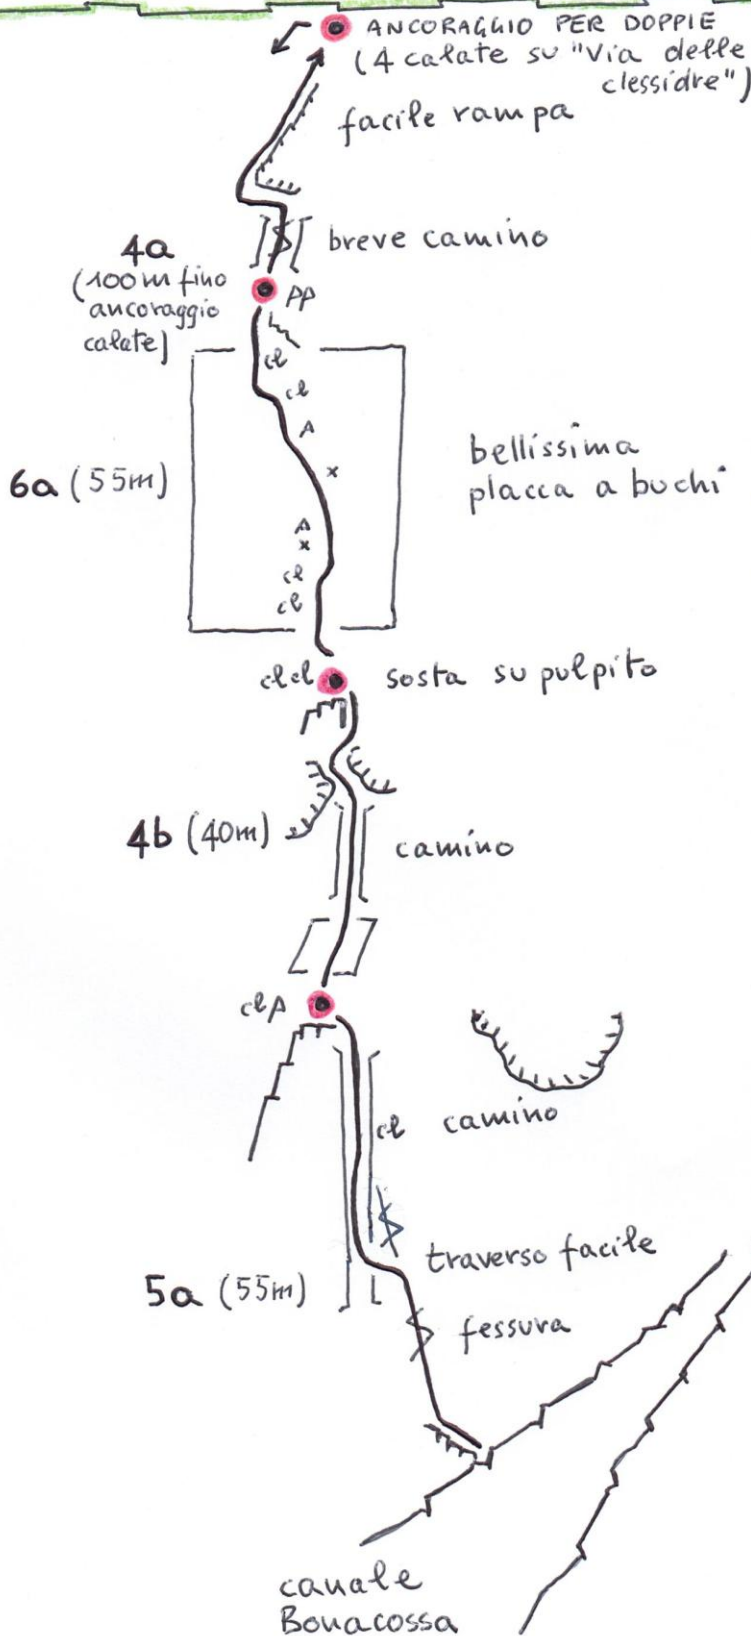 ANCORAGGIO PER DOPPIE
(4 calate su "Via delle
clessidre")
facile rampa
breve camino
4a
(100m fino
ancoraggio
calate)
PP
cl
cl
A
x
6a (55m)
bellissima
placca a buchi
A
x
cl
cl
clcl
sosta su pulpito
4b (40m)
camino
clp
cl
camino
traverso facile
5a (55m)
fessura
canale
Bonacossa